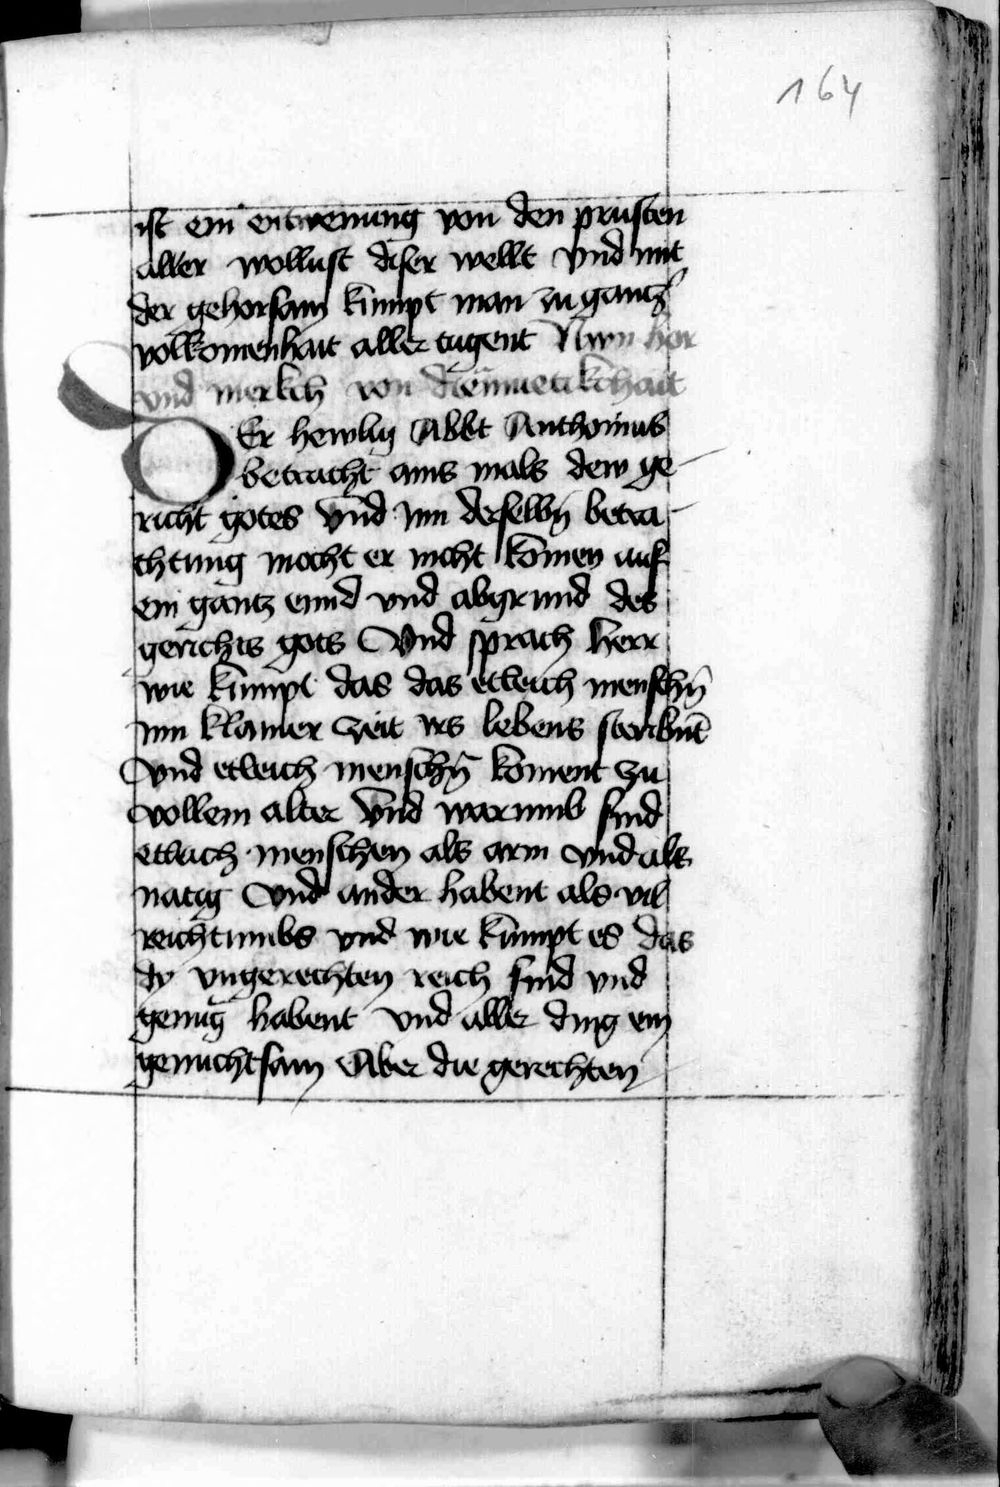 164
ist ein entwenung von den prusten
aller wollust diser wellt vnd mit
der gehorsam kumpt man zu gantz
volkomenhait aller tugent Nun hor
vnd merkch von diemuetikchait
DEr heylig Abbt Anthonius
betracht ains mals dew ge
richt gotes vnd jnn derselbn̄ betra
chtung mocht er nicht komen auf
ein gantz ennd vnd abgrund des
gerichts gots Vnd sprach herr
wie kumpt das das etleich menschn̄
jnn klainer zeit irs lebens sterbnt̄
Vnd etleich menschn̄ koment zu
vollem alter Vnd warumb sind
etlaich menschen als arm vnd als
natig Vnd ander habent als vil
reichtumbs vnd wie kumpt es das
dy vngerechten reich sind vnd
genug habent vnd aller ding ein
genuchtsam Aber die gerechten